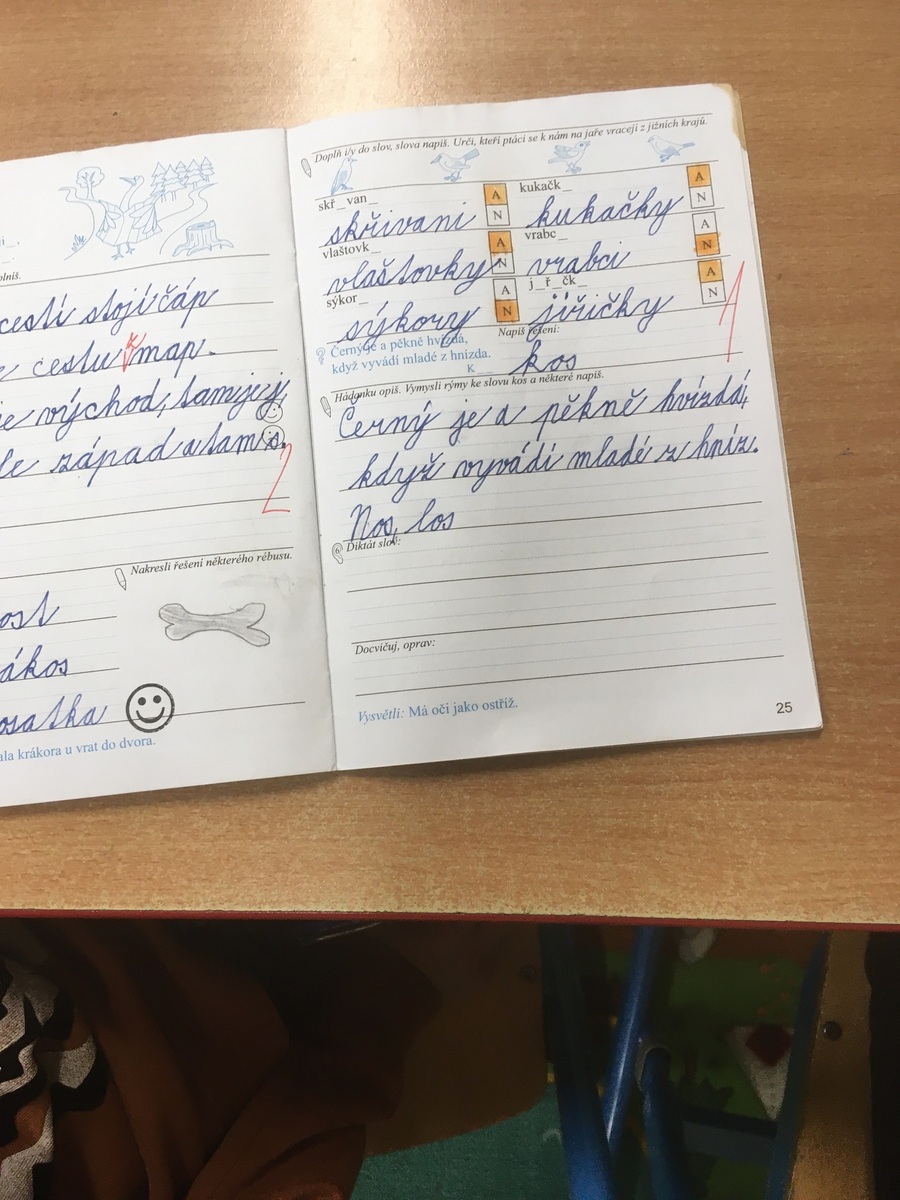 cestí stojí čáp
cestu k map.
východ, tam je j,
západ a tam s.
2
Nakresli řešení některého rébusu.
ost
ákos
osatka
ala krákora u vrat do dvora.
Doplň i/y do slov, slova napiš. Urči, kteří ptáci se k nám na jaře vracejí z jižních krajů.
skř_van_ A N kukačk_ A N
skřivani kukačky
vlaštovk_ A N vrabc_ A N
vlaštovky vrabci
sýkor_ A N j_ř_čk_ A N
sýkory jiřičky
1
Černý je a pěkně hvízdá, Napiš řešení:
když vyvádí mladé z hnízda.
K__ kos
Hádanku opiš. Vymysli rýmy ke slovu kos a některé napiš.
Černý je a pěkně hvízdá,
když vyvádí mladé z hníz.
Nos, los
Diktát slov:
Docvičuj, oprav:
Vysvětli: Má oči jako ostříž.
25